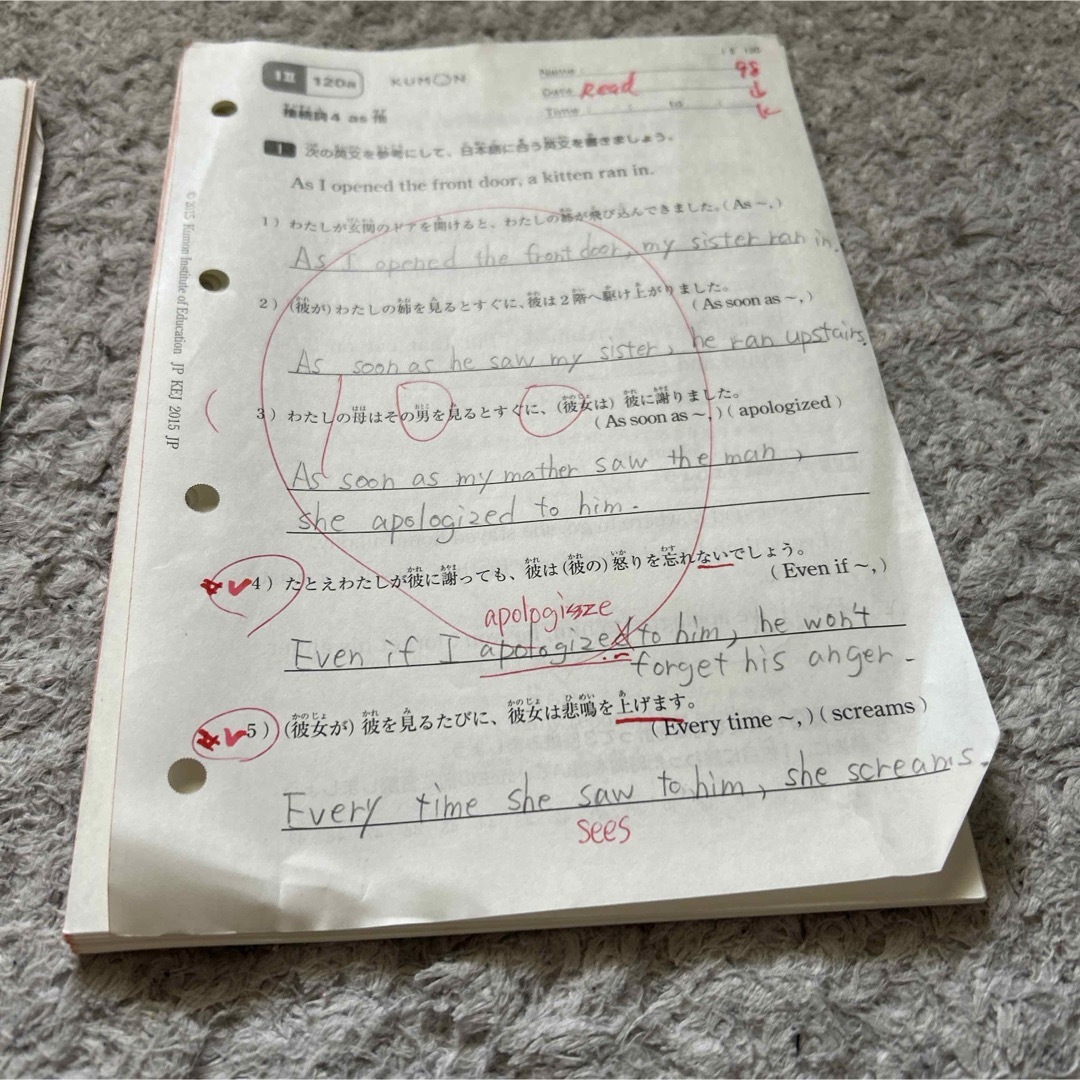 I II 120a KUMON
Name
Date Read
Time to
接続詞4 as 他
1 次の英文を参考にして、日本語に合う英文を書きましょう。
As I opened the front door, a kitten ran in.
1) わたしが玄関のドアを開けると、わたしの姉が飛び込んできました。(As ~,)
As I opened the front door, my sister ran in.
2) (彼が)わたしの姉を見るとすぐに、彼は2階へ駆け上がりました。
(As soon as ~,)
As soon as he saw my sister, he ran upstairs.
3) わたしの母はその男を見るとすぐに、(彼女は) 彼に謝りました。
(As soon as ~,) (apologized)
As soon as my mather saw the man,
she apologized to him.
4) たとえわたしが彼に謝っても、彼は(彼の)怒りを忘れないでしょう。
(Even if ~,)
apologize
Even if I apologized to him, he won't
forget his anger.
5) (彼女が) 彼を見るたびに、彼女は悲鳴を上げます。
(Every time ~,) (screams)
Every time she saw to him, she screams.
sees
© 2015 Kumon Institute of Education JP KEJ 2015 JP
100